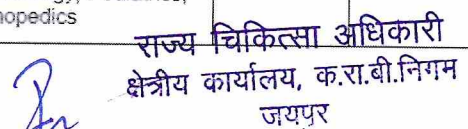 hopedics
राज्य चिकित्सा अधिकारी
क्षेत्रीय कार्यालय, क.रा.बी.निगम
जयपुर